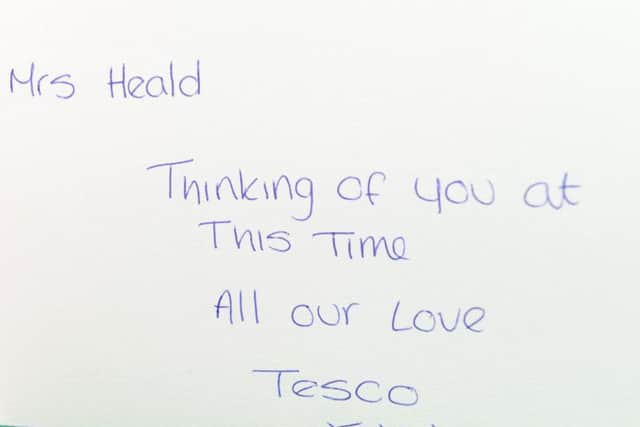 Mrs Heald
Thinking of you at
This Time
All our Love
Tesco